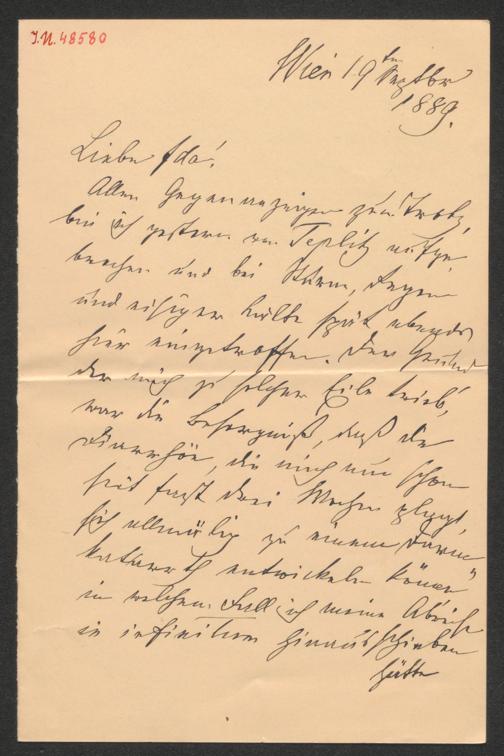 I.N. 48580
Wien 19ten Septbr
1889.
Liebe Ida!
Allen Gegenanzeigen zum Trotz,
bin ich gestern von Teplitz aufge
brochen und bei Sturm, Regen
und eisiger Kälte spät abends
hier eingetroffen. Der Grund
der mich zu solcher Eile trieb,
war die Besorgniß, daß die
Diarrhöe, die mich nun schon
seit fast drei Wochen plagt,
sich allmälig zu einem Darm
katarrh entwickeln könne
in welchem Fall ich meine Abreise
in infinitum hinausschieben
hätte